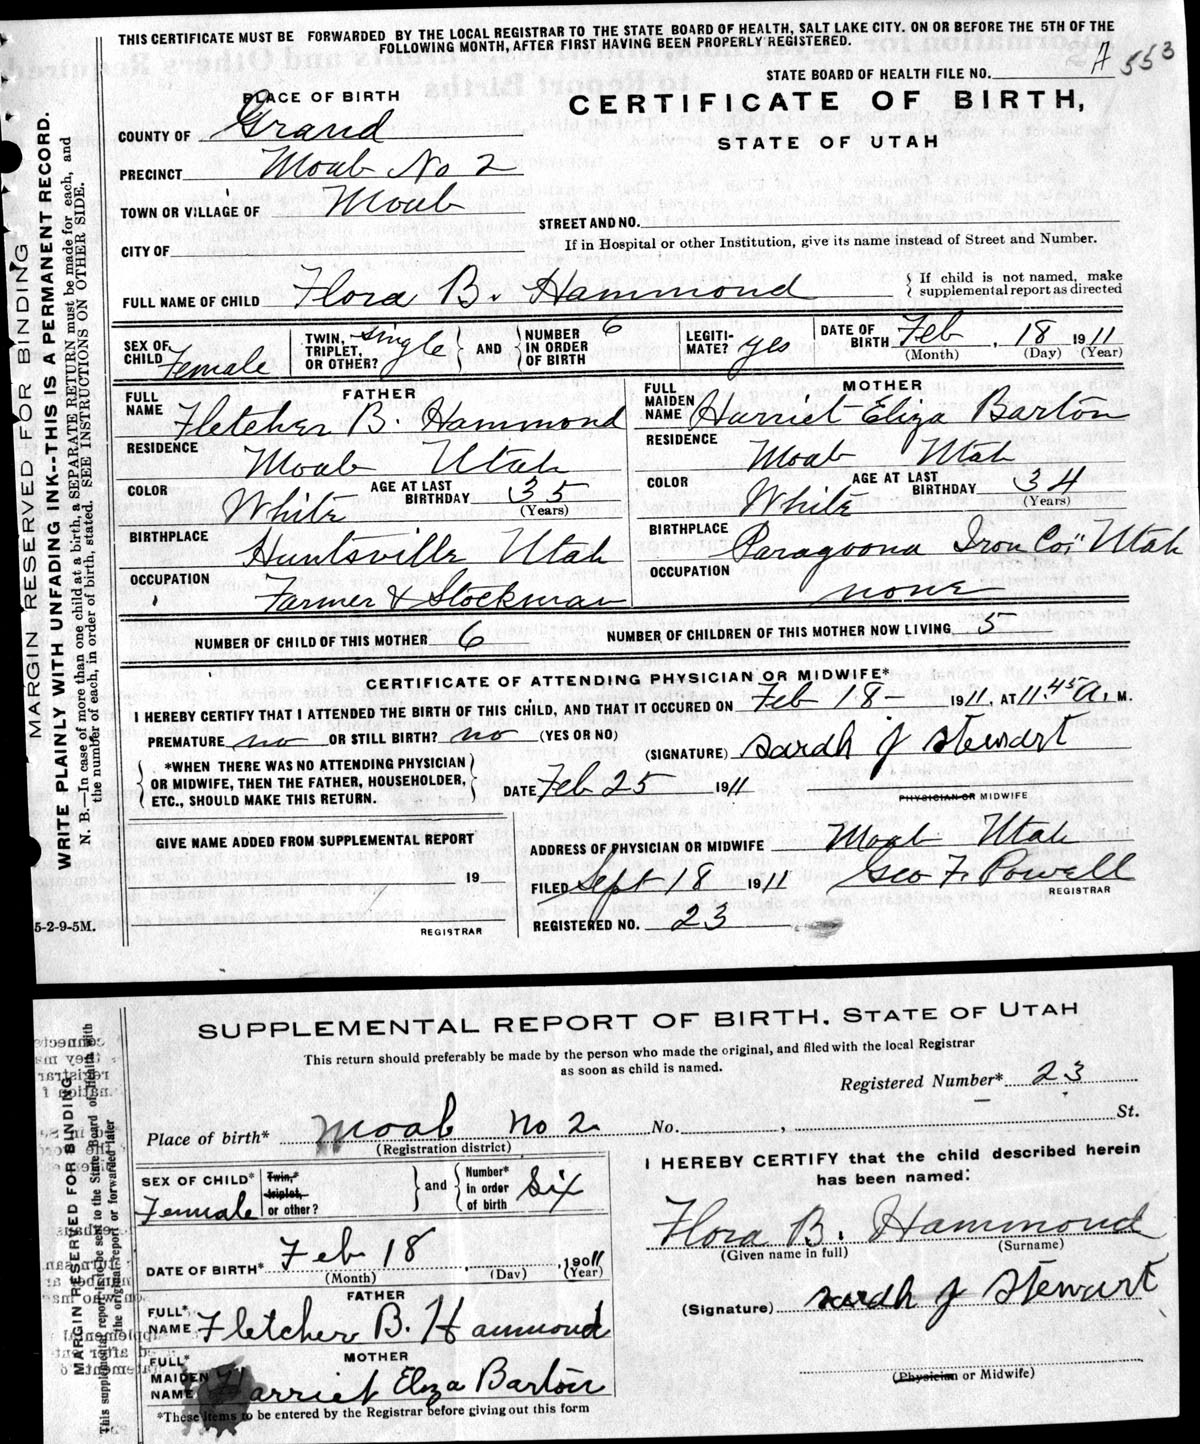 THIS CERTIFICATE MUST BE FORWARDED BY THE LOCAL REGISTRAR TO THE STATE BOARD OF HEALTH, SALT LAKE CITY. ON OR BEFORE THE 5TH OF THE
FOLLOWING MONTH, AFTER FIRST HAVING BEEN PROPERLY REGISTERED.
STATE BOARD OF HEALTH FILE NO. A 553
PLACE OF BIRTH
CERTIFICATE OF BIRTH,
STATE OF UTAH
COUNTY OF Grand
PRECINCT Moab No 2
TOWN OR VILLAGE OF Moab
STREET AND NO.
CITY OF
If in Hospital or other Institution, give its name instead of Street and Number.
FULL NAME OF CHILD Flora B. Hammond
If child is not named, make
supplemental report as directed
SEX OF CHILD Female
TWIN, TRIPLET, OR OTHER? single
AND
NUMBER IN ORDER OF BIRTH 6
LEGITI-MATE? yes
DATE OF BIRTH Feb, 18 1911
(Month) (Day) (Year)
FATHER
FULL NAME Fletcher B. Hammond
RESIDENCE Moab Utah
COLOR White AGE AT LAST BIRTHDAY 35
(Years)
BIRTHPLACE Huntsville Utah
OCCUPATION Farmer & Stockman
MOTHER
FULL MAIDEN NAME Harriet Eliza Barton
RESIDENCE Moab Utah
COLOR White AGE AT LAST BIRTHDAY 34
(Years)
BIRTHPLACE Paragoona Iron Co," Utah
OCCUPATION none
NUMBER OF CHILD OF THIS MOTHER 6 NUMBER OF CHILDREN OF THIS MOTHER NOW LIVING 5
CERTIFICATE OF ATTENDING PHYSICIAN OR MIDWIFE*
I HEREBY CERTIFY THAT I ATTENDED THE BIRTH OF THIS CHILD, AND THAT IT OCCURED ON Feb 18- 1911, AT 11.45 A. M.
PREMATURE no OR STILL BIRTH? no (YES OR NO)
(SIGNATURE) Sarah J Stewart
*WHEN THERE WAS NO ATTENDING PHYSICIAN
OR MIDWIFE, THEN THE FATHER, HOUSEHOLDER,
ETC., SHOULD MAKE THIS RETURN.
DATE Feb 25 1911
PHYSICIAN OR MIDWIFE
GIVE NAME ADDED FROM SUPPLEMENTAL REPORT
19
REGISTRAR
ADDRESS OF PHYSICIAN OR MIDWIFE Moab Utah
FILED Sept 18 1911 Geo F. Powell
REGISTRAR
REGISTERED NO. 23
MARGIN RESERVED FOR BINDING
WRITE PLAINLY WITH UNFADING INK--THIS IS A PERMANENT RECORD.
N. B.—In case of more than one child at a birth, a SEPARATE RETURN must be made for each, and
the number of each, in order of birth, stated. SEE INSTRUCTIONS ON OTHER SIDE.
5-2-9-5M.
SUPPLEMENTAL REPORT OF BIRTH. STATE OF UTAH
This return should preferably be made by the person who made the original, and filed with the local Registrar
as soon as child is named.
Registered Number* 23
Place of birth* Moab No 2 No. , St.
(Registration district)
SEX OF CHILD* Female
Twin,* triplet, or other?
and
Number* in order of birth Six
DATE OF BIRTH* Feb 18, 1911
(Month) (Day) (Year)
FATHER
FULL* NAME Fletcher B. Hammond
MOTHER
FULL* MAIDEN NAME Harriet Eliza Barton
*These items to be entered by the Registrar before giving out this form
I HEREBY CERTIFY that the child described herein
has been named:
Flora B. Hammond
(Given name in full) (Surname)
(Signature) Sarah J Stewart
(Physician or Midwife)
MARGIN RESERVED FOR BINDING
This supplemental report is to be sent to the State Board of Health with
the original report or forwarded later